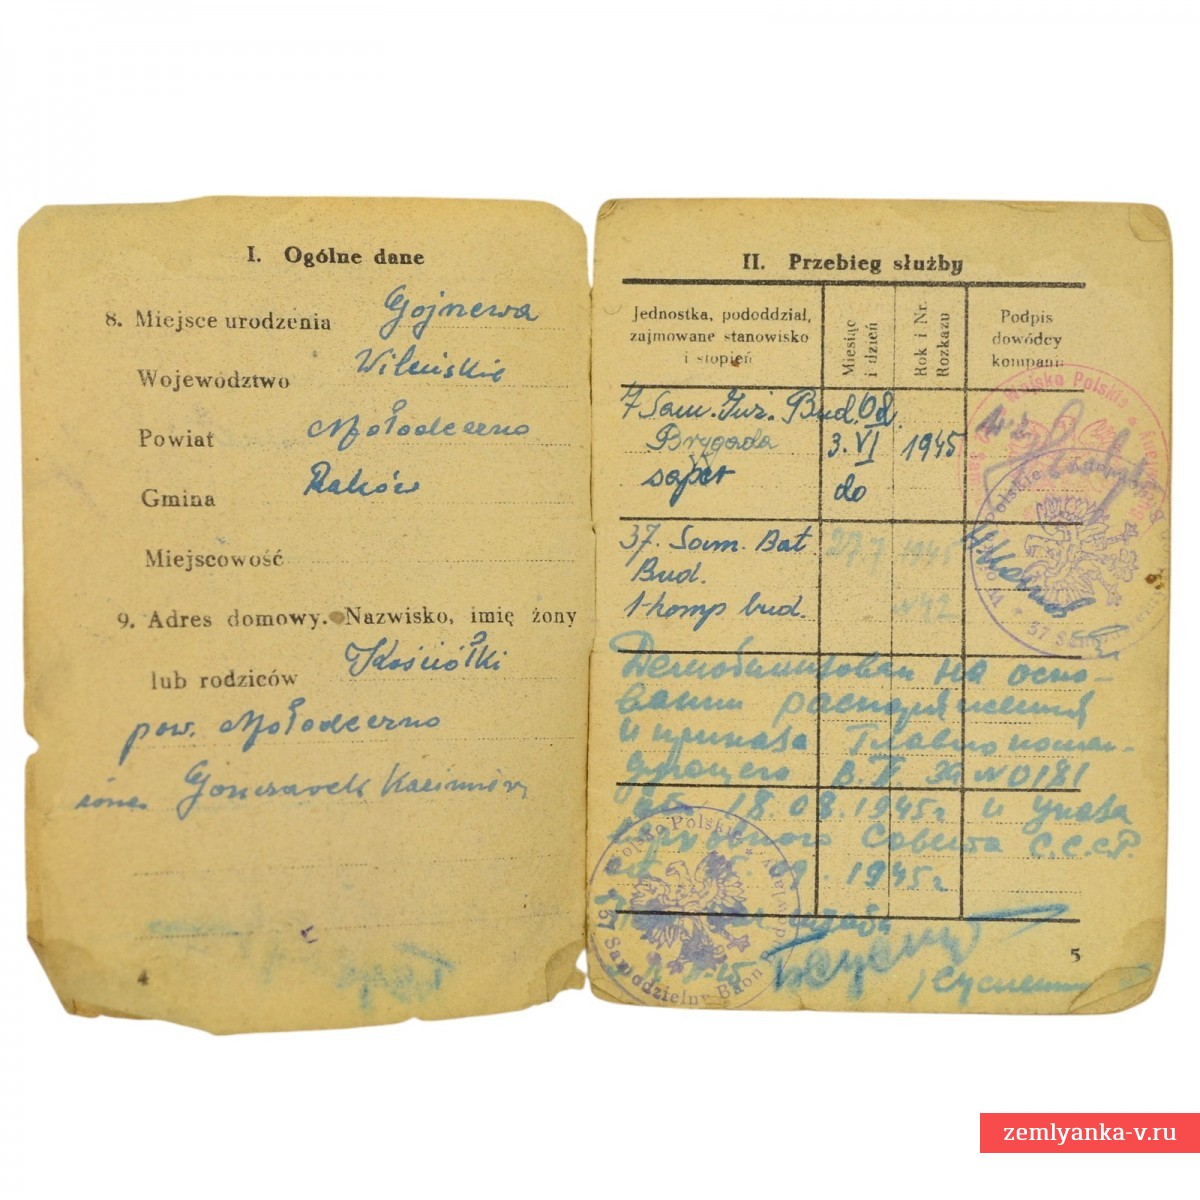 I. Ogólne dane
8. Miejsce urodzenia Gojnewa
Województwo Wileńskie
Powiat Mołodeczno
Gmina Raków
Miejscowość
9. Adres domowy. Nazwisko, imię żony
lub rodziców Kościółki
pow. Mołodeczno
4
II. Przebieg służby
Jednostka, pododdział, zajmowane stanowisko i stopień
Miesiąc i dzień
Rok i Nr. Rozkazu
Podpis dowódcy kompanii
7 Sam. Inż. Bud. Od.
Brygada 3. VI 1945
saper do
37. Sam. Bat 27.7 1945
Bud.
1-komp bud. N42
Демобилизован на осно-
вании распоряжения
и приказа Главнокоман-
дующего В.П. N 0181
18.08.1945г и указа
Верховного Совета С.С.С.Р.
09.1945г
Wojsko Polskie
57 Samodzielny Baon
5
zemlyanka-v.ru